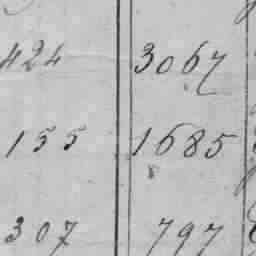 424 3067
155 1685
307 797